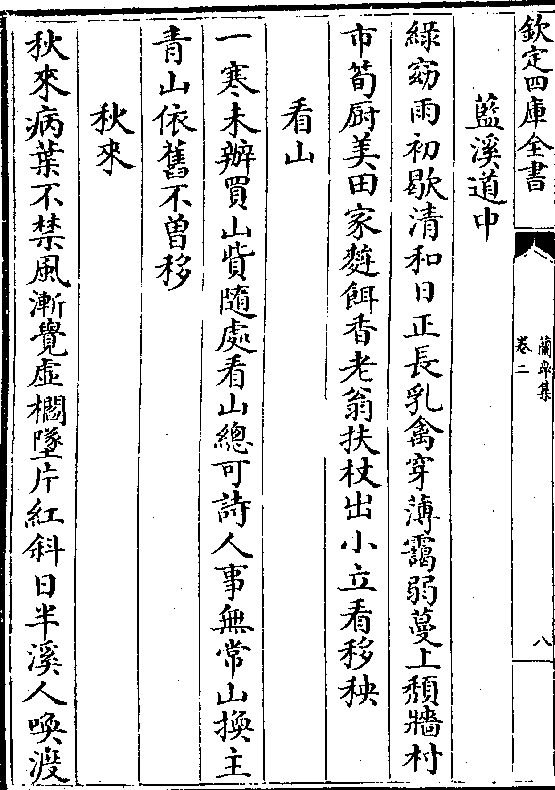 欽定四庫全書
蘭皐集
卷二
八
藍溪道中
綠窈雨初歇清和日正長乳禽穿薄靄弱蔓上頽牆村
市筍厨美田家麰餌香老翁扶杖出小立看移秧
看山
一寒未辦買山貲隨處看山總可詩人事無常山換主
青山依舊不曾移
秋來
秋來病葉不禁風漸覺虛櫩墜片紅斜日半溪人喚渡